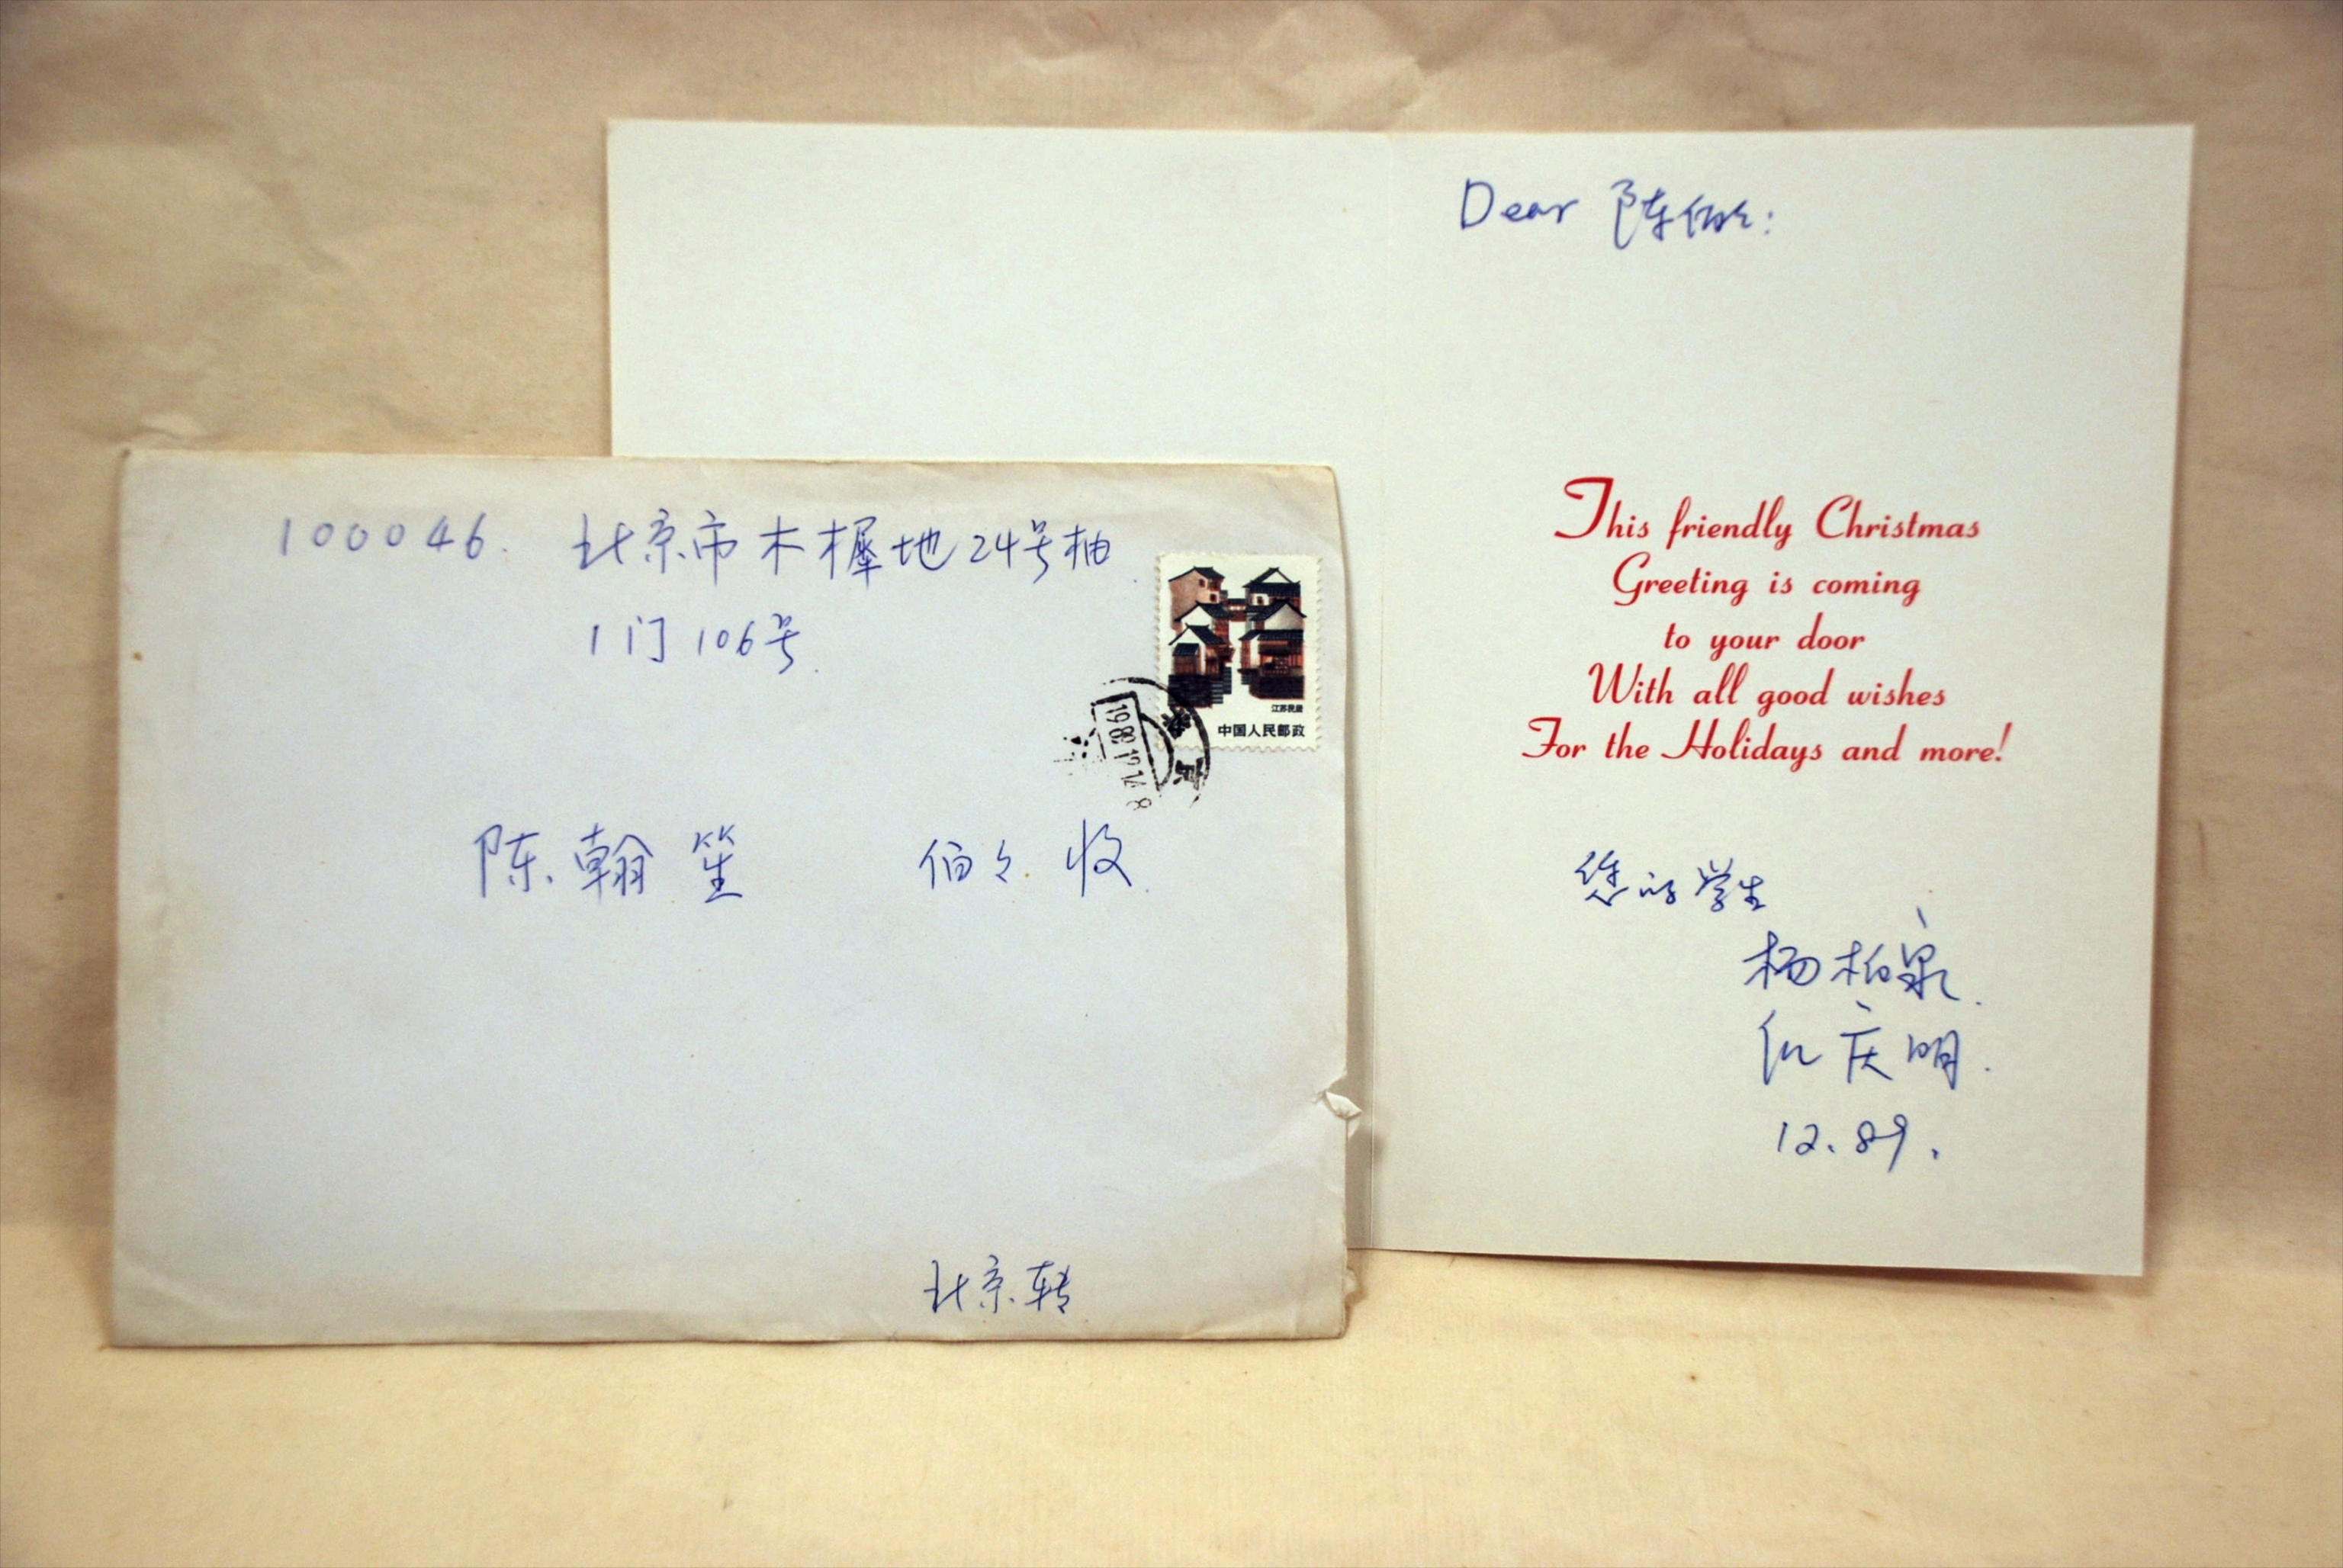 100046. 北京市木樨地24号楼
1门106号.
江苏民居
中国人民邮政
陈翰笙 伯々 收
北京转
Dear 陈伯々:
This friendly Christmas
Greeting is coming
to your door
With all good wishes
For the Holidays and more!
您的学生
杨柏泉.
仉庆明.
12.89.